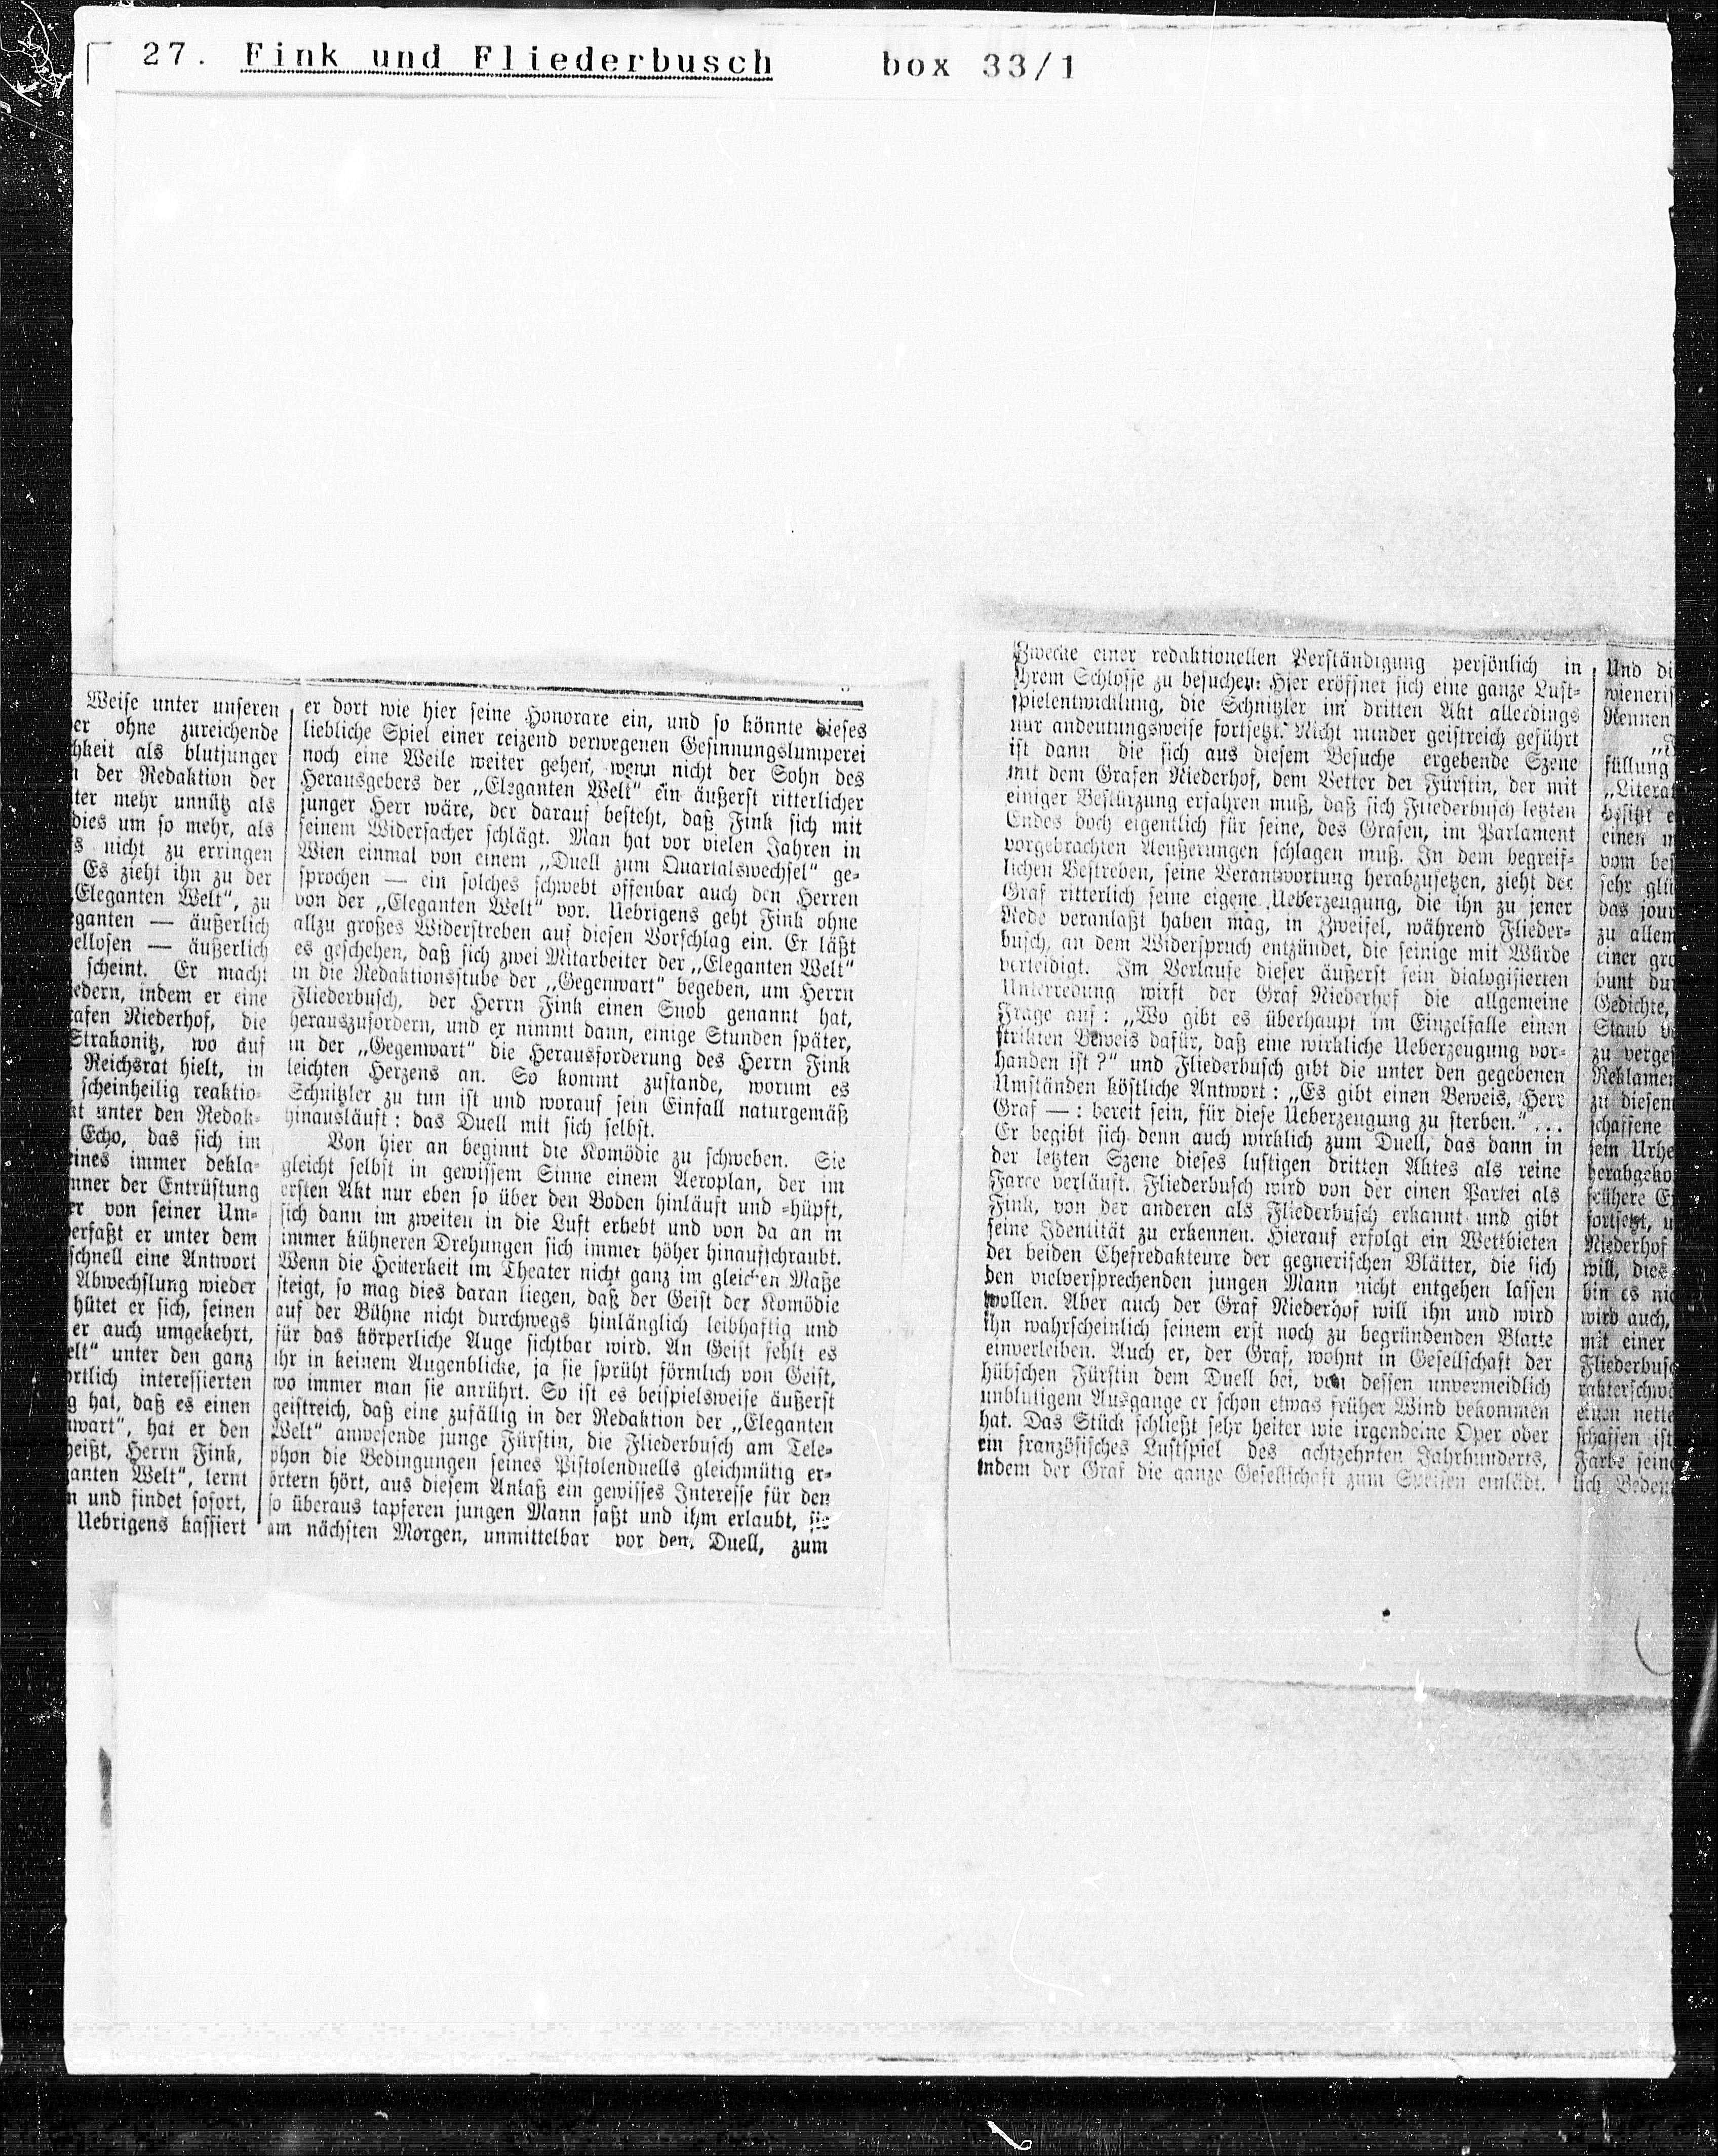 27. Fink und Fliederbusch box 33/1
Weise unter unseren
er ohne zureichende
hkeit als blutjunger
der Redaktion der
ter mehr unnütz als
dies um so mehr, als
s nicht zu erringen
Es zieht ihn zu der
„Eleganten Welt“, zu
ganten — äußerlich
ellosen — äußerlich
scheint. Er macht
edern, indem er eine
rafen Niederhof, die
Strakonitz, wo auf
Reichsrat hielt, in
scheinheilig reaktio-
kt unter den Redak-
Echo, das sich im
eines immer dekla-
nner der Entrüstung
er von seiner Um-
verfaßt er unter dem
schnell eine Antwort
Abwechslung wieder
hütet er sich, seinen
er auch umgekehrt,
elt“ unter den ganz
ortlich interessierten
g hat, daß es einen
wart“, hat er den
heißt, Herrn Fink,
ganten Welt“, lernt
n und findet sofort,
Uebrigens kassiert
er dort wie hier seine Honorare ein, und so könnte dieses
liebliche Spiel einer reizend verwegenen Gesinnungslumperei
noch eine Weile weiter gehen, wenn nicht der Sohn des
Herausgebers der „Eleganten Welt“ ein äußerst ritterlicher
junger Herr wäre, der darauf besteht, daß Fink sich mit
seinem Widersacher schlägt. Man hat vor vielen Jahren in
Wien einmal von einem „Duell zum Quartalswechsel“ ge-
sprochen — ein solches schwebt offenbar auch den Herren
von der „Eleganten Welt“ vor. Uebrigens geht Fink ohne
allzu großes Widerstreben auf diesen Vorschlag ein. Er läßt
es geschehen, daß sich zwei Mitarbeiter der „Eleganten Welt“
in die Redaktionsstube der „Gegenwart“ begeben, um Herrn
Fliederbusch, der Herrn Fink einen Snob genannt hat,
herauszufordern, und er nimmt dann, einige Stunden später,
in der „Gegenwart“ die Herausforderung des Herrn Fink
leichten Herzens an. So kommt zustande, worum es
Schnitzler zu tun ist und worauf sein Einfall naturgemäß
hinausläuft: das Duell mit sich selbst.
Von hier an beginnt die Komödie zu schweben. Sie
gleicht selbst in gewissem Sinne einem Aeroplan, der im
ersten Akt nur eben so über den Boden hinläuft und =hüpft,
sich dann im zweiten in die Luft erhebt und von da an in
immer kühneren Drehungen sich immer höher hinaufschraubt.
Wenn die Heiterkeit im Theater nicht ganz im gleichen Maße
steigt, so mag dies daran liegen, daß der Geist der Komödie
auf der Bühne nicht durchwegs hinlänglich leibhaftig und
für das körperliche Auge sichtbar wird. An Geist fehlt es
ihr in keinem Augenblicke, ja sie sprüht förmlich von Geist,
wo immer man sie anrührt. So ist es beispielsweise äußerst
geistreich, daß eine zufällig in der Redaktion der „Eleganten
Welt“ anwesende junge Fürstin, die Fliederbusch am Tele-
phon die Bedingungen seines Pistolenduells gleichmütig er-
örtern hört, aus diesem Anlaß ein gewisses Interesse für den
so überaus tapferen jungen Mann faßt und ihm erlaubt, sie
am nächsten Morgen, unmittelbar vor dem Duell, zum
Zwecke einer redaktionellen Verständigung persönlich in
ihrem Schlosse zu besuchen: Hier eröffnet sich eine ganze Lust-
spielentwicklung, die Schnitzler im dritten Akt allerdings
nur andeutungsweise fortsetzt. Nicht minder geistreich geführt
ist dann die sich aus diesem Besuche ergebende Szene
mit dem Grafen Niederhof, dem Vetter der Fürstin, der mit
einiger Bestürzung erfahren muß, daß sich Fliederbusch letzten
Endes doch eigentlich für seine, des Grafen, im Parlament
vorgebrachten Aeußerungen schlagen muß. In dem begreif-
lichen Bestreben, seine Verantwortung herabzusetzen, zieht der
Graf ritterlich seine eigene Ueberzeugung, die ihn zu jener
Rede veranlaßt haben mag, in Zweifel, während Flieder-
busch, an dem Widerspruch entzündet, die seinige mit Würde
verteidigt. Im Verlaufe dieser äußerst fein dialogisierten
Unterredung wirft der Graf Niederhof die allgemeine
Frage auf: „Wo gibt es überhaupt im Einzelfalle einen
strikten Beweis dafür, daß eine wirkliche Ueberzeugung vor-
handen ist?“ und Fliederbusch gibt die unter den gegebenen
Umständen köstliche Antwort: „Es gibt einen Beweis, Herr
Graf —: bereit sein, für diese Ueberzeugung zu sterben.“...
Er begibt sich denn auch wirklich zum Duell, das dann in
der letzten Szene dieses lustigen dritten Aktes als reine
Farce verläuft. Fliederbusch wird von der einen Partei als
Fink, von der anderen als Fliederbusch erkannt und gibt
seine Identität zu erkennen. Hierauf erfolgt ein Wettbieten
der beiden Chefredakteure der gegnerischen Blätter, die sich
den vielversprechenden jungen Mann nicht entgehen lassen
wollen. Aber auch der Graf Niederhof will ihn und wird
ihn wahrscheinlich seinem erst noch zu begründenden Blatte
einverleiben. Auch er, der Graf, wohnt in Gesellschaft der
hübschen Fürstin dem Duell bei, von dessen unvermeidlich
unblutigem Ausgange er schon etwas früher Wind bekommen
hat. Das Stück schließt sehr heiter wie irgendeine Oper oder
ein französisches Lustspiel des achtzehnten Jahrhunderts,
indem der Graf die ganze Gesellschaft zum Speisen einlädt.
Und di
wieneris
Rennen
füllung
„Litera
besitzt e
einen m
vom bes
sehr glü
das jour
zu allem
einer gro
bunt dur
Gedichte,
Staub v
zu verges
Reklamen
zu diesem
schaffene
sein Urhe
herabgeko
frühere E
fortsetzt, u
Niederhof
will, dies
bin es nic
wird auch,
mit einer
Fliederbusc
rakterschwä
einen nette
schaffen ist
Farbe seine
lich Beden